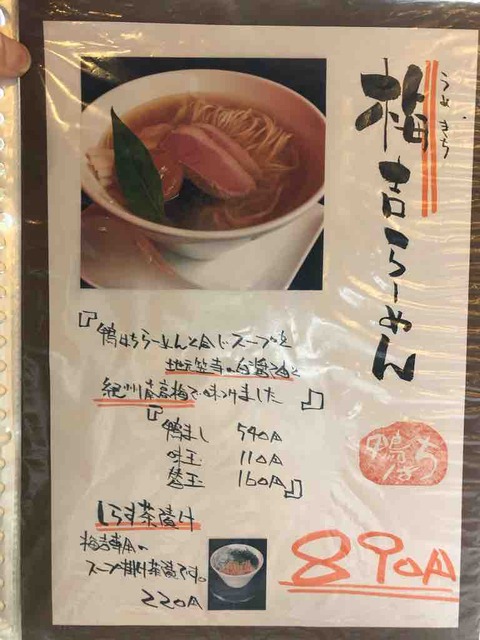 うめきち
梅吉らーめん
『鴨はちらーめんと同じスープを
地元笠寺の白醤油と
紀州南高梅で味つけました』
『鴨まし 540円
味玉 110円
替玉 160円』
しらす茶漬け
梅吉専用の
スープ掛け茶漬です。
220円
鴨はち
890円